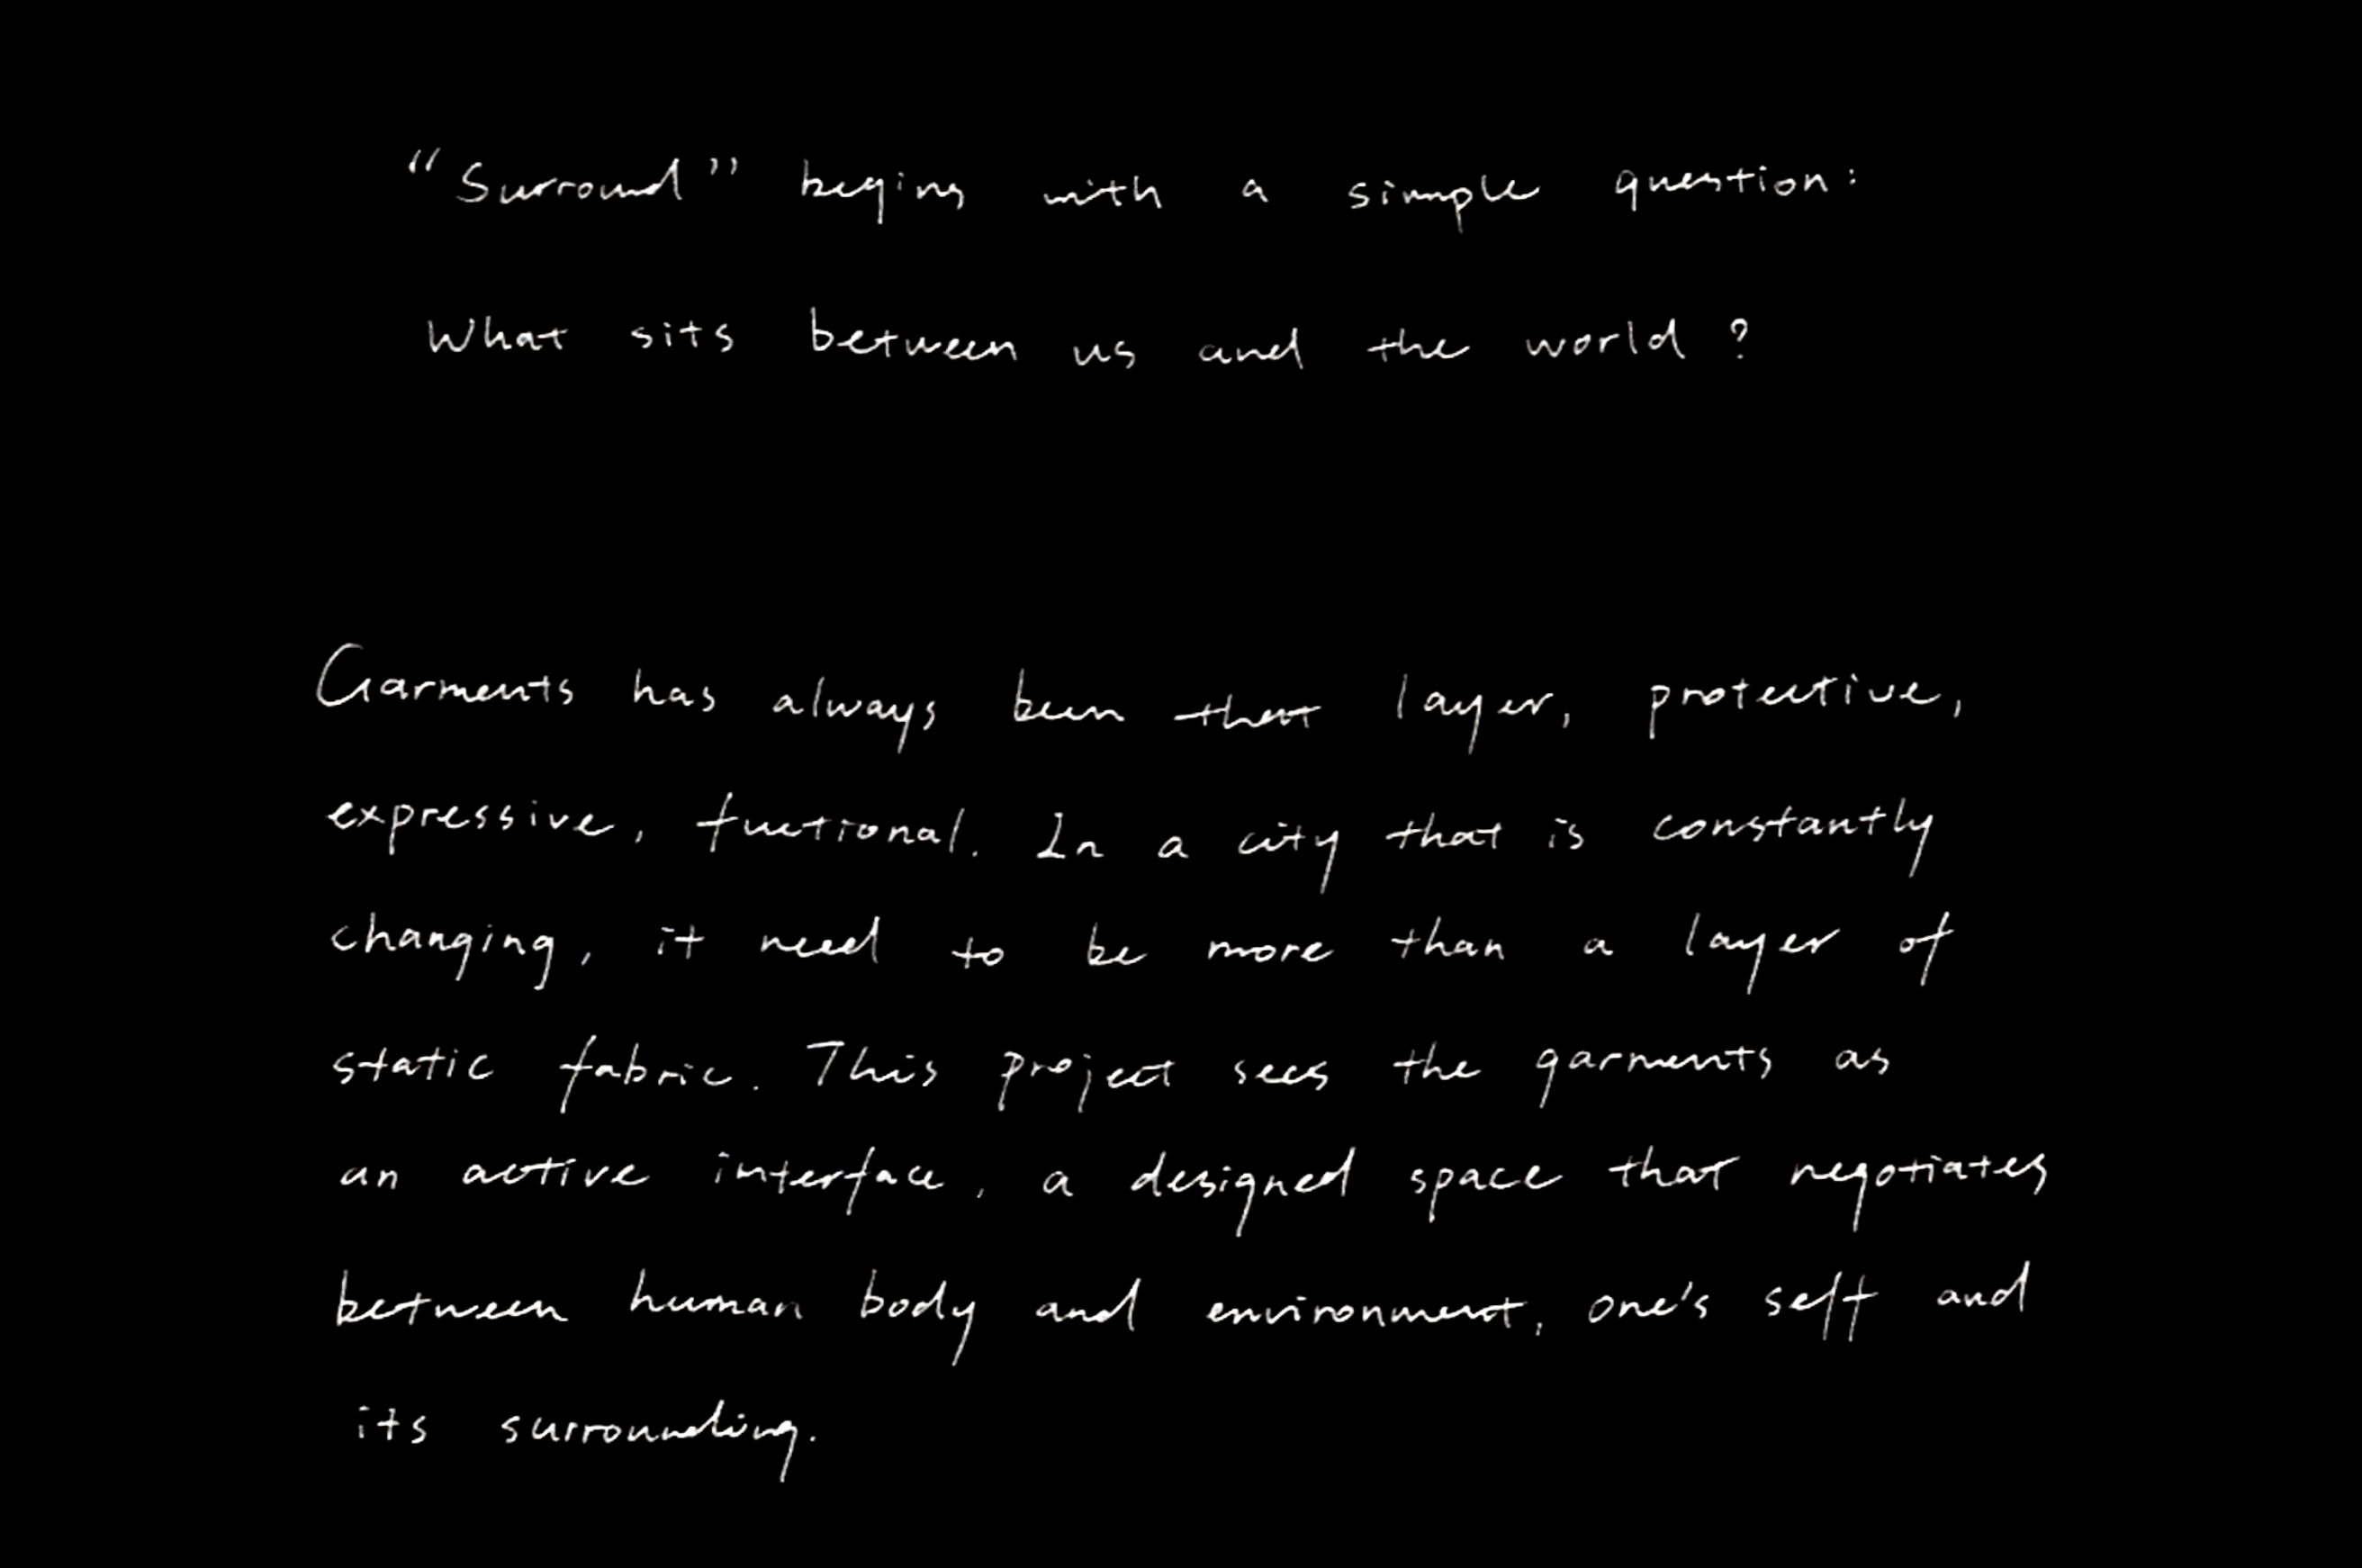 “Surround” begins with a simple question:
What sits between us and the world?
Garments has always been that layer, protective,
expressive, fuctional. In a city that is constantly
changing, it need to be more than a layer of
static fabric. This project sees the garments as
an active interface, a designed space that negotiates
between human body and environment, one's self and
its surrounding.